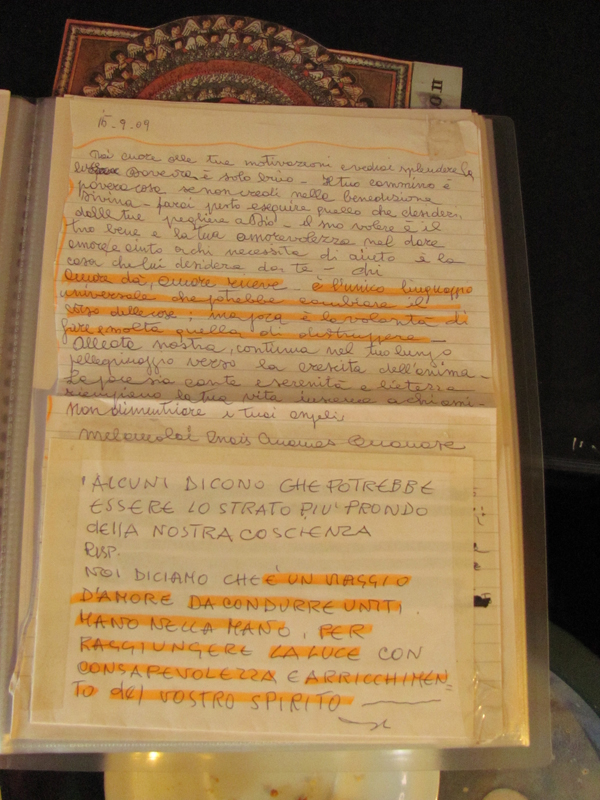 15-9-09
cuore alle tue motivazioni e vedrai splendere la
dovevra è solo buio - Il tuo cammino è
povera cosa se non credi nella benedizione
Divina - farai presto eseguire quello che desideri
dalle tue preghiere a Dio - il suo volere è il
tuo bene e la tua amorevolezza nel dare
amore e aiuto a chi necessita di aiuto è la
cosa che lui desidera da te - chi
amore dà, amore riceve - è l'unico linguaggio
universale che potrebbe cambiare il
corso delle cose, ma poca è la volontà di
fare e molta quella di distruggere -
Alleata nostra, continua nel tuo lungo
pellegrinaggio verso la crescita dell'anima -
La pace sia con te e serenità e lietezza
riempiano la tua vita insieme a chi ami -
Non dimenticare i tuoi angeli
ALCUNI DICONO CHE POTREBBE
ESSERE LO STRATO PIU' PRONDO
DELLA NOSTRA COSCIENZA
RISP.
NOI DICIAMO CHE È UN VIAGGIO
D'AMORE DA CONDURRE UNITI
MANO NELLA MANO, PER
RAGGIUNGERE LA LUCE CON
CONSAPEVOLEZZA E ARRICCHIMEN=
TO del VOSTRO SPIRITO